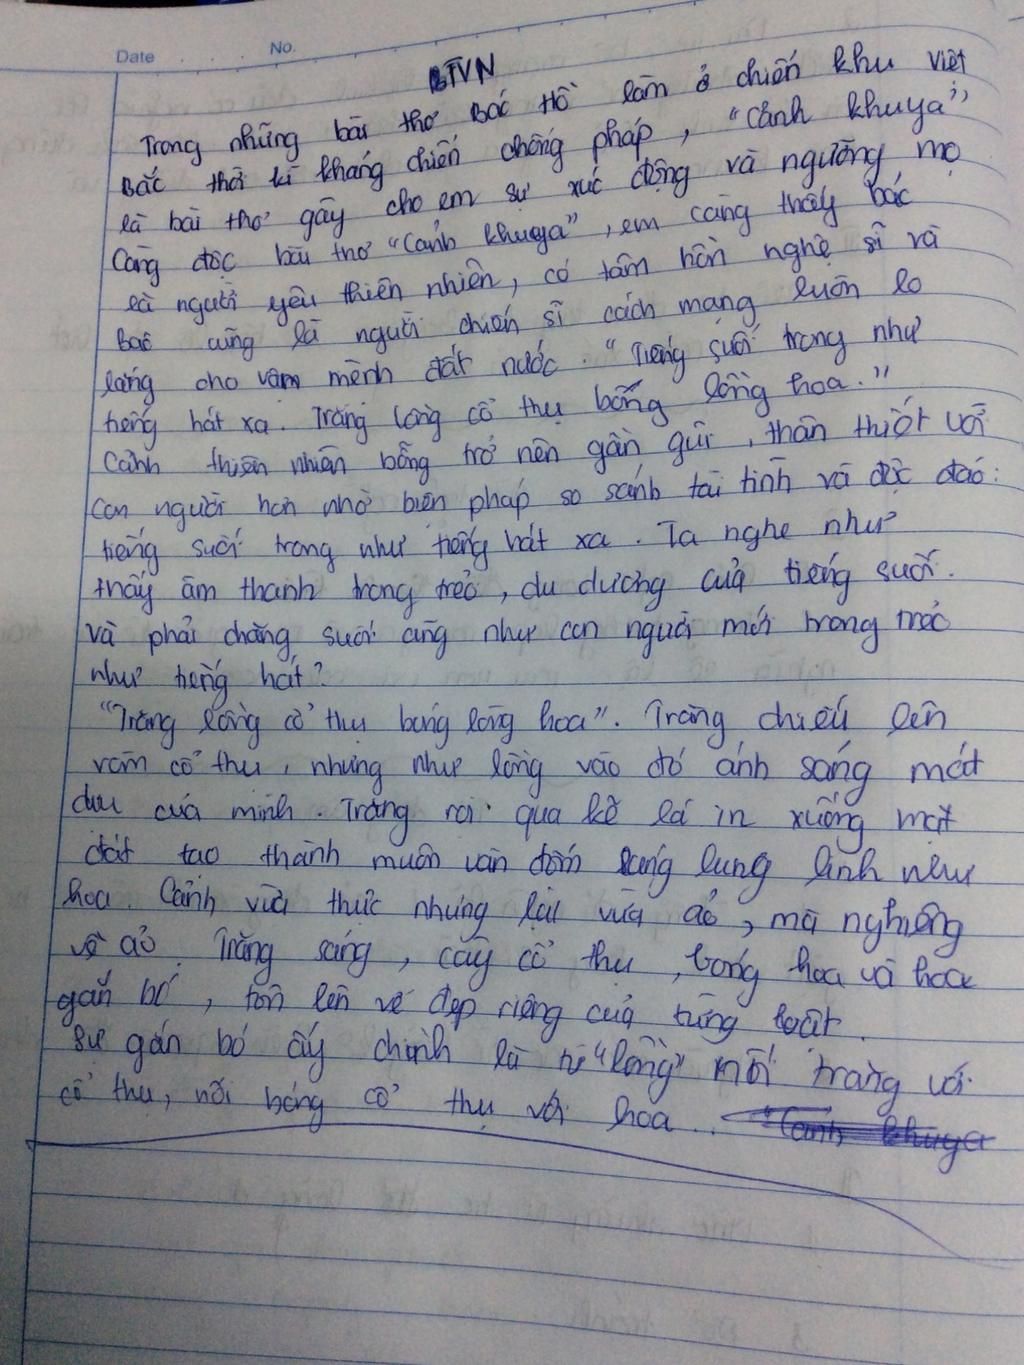 Date No.
BTVN
Trong những bài thơ Bác Hồ làm ở chiến khu Việt
Bắc thời kì kháng chiến chống pháp, "Cảnh khuya"
là bài thơ gây cho em sự xúc động và ngưỡng mọ
Càng đọc bài thơ "Cảnh khuya", em càng thấy bác
là người yêu thiên nhiên, có tâm hồn nghệ sĩ và
Bác cũng là người chiến sĩ cách mạng luôn lo
lắng cho vậm mệnh đất nước. "Tiếng suối trong như
tiếng hát xa. Trăng lồng cổ thụ bóng lồng hoa."
Cảnh thiên nhiên bỗng trở nên gần gũi, thân thiết với
con người hơn nhờ biện pháp so sánh tài tình và độc đáo:
tiếng suối trong như tiếng hát xa. Ta nghe như
thấy âm thanh trong trẻo, du dương của tiếng suối.
và phải chăng suối cũng như con người mới trong trẻo
như tiếng hát?
"Trăng lồng cổ thụ bóng lồng hoa". Trăng chiếu lên
vòm cổ thụ, nhưng như lồng vào đó ánh sáng mát
dịu của mình. Trăng rọi qua kẽ lá in xuống mặt
đất tạo thành muôn vàn đốm sáng lung linh như
hoa. Cảnh vừa thực nhưng lại vừa ảo, mà nghiêng
về ảo. Trăng sáng, cây cổ thụ, bóng hoa và hoa
gắn bó, tôn lên vẻ đẹp riêng của từng loài.
Sự gắn bó ấy chính là từ "lồng" nối trăng với
cổ thụ, nối bóng cổ thụ với hoa.. "Cảnh khuya